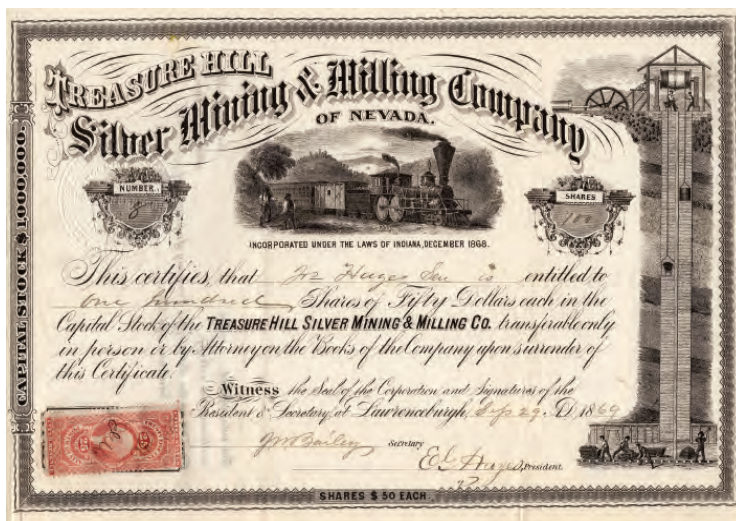 TREASURE HILL
Silver Mining & Milling Company
OF NEVADA.
CAPITAL STOCK $ 1,000,000.
NUMBER
8
SHARES
100
INCORPORATED UNDER THE LAWS OF INDIANA, DECEMBER 1868.
This certifies, that Jos Hayes Sen is entitled to
one hundred Shares of Fifty Dollars each in the
Capital Stock of the TREASURE HILL SILVER MINING & MILLING CO. transferable only
in person or by Attorney on the Books of the Company upon surrender of
this Certificate.
Witness the Seal of the Corporation and Signatures of the
President & Secretary, at Lawrenceburgh, Sep 29 AD 1869
25 25
Secretary
President.
SHARES $ 50 EACH.